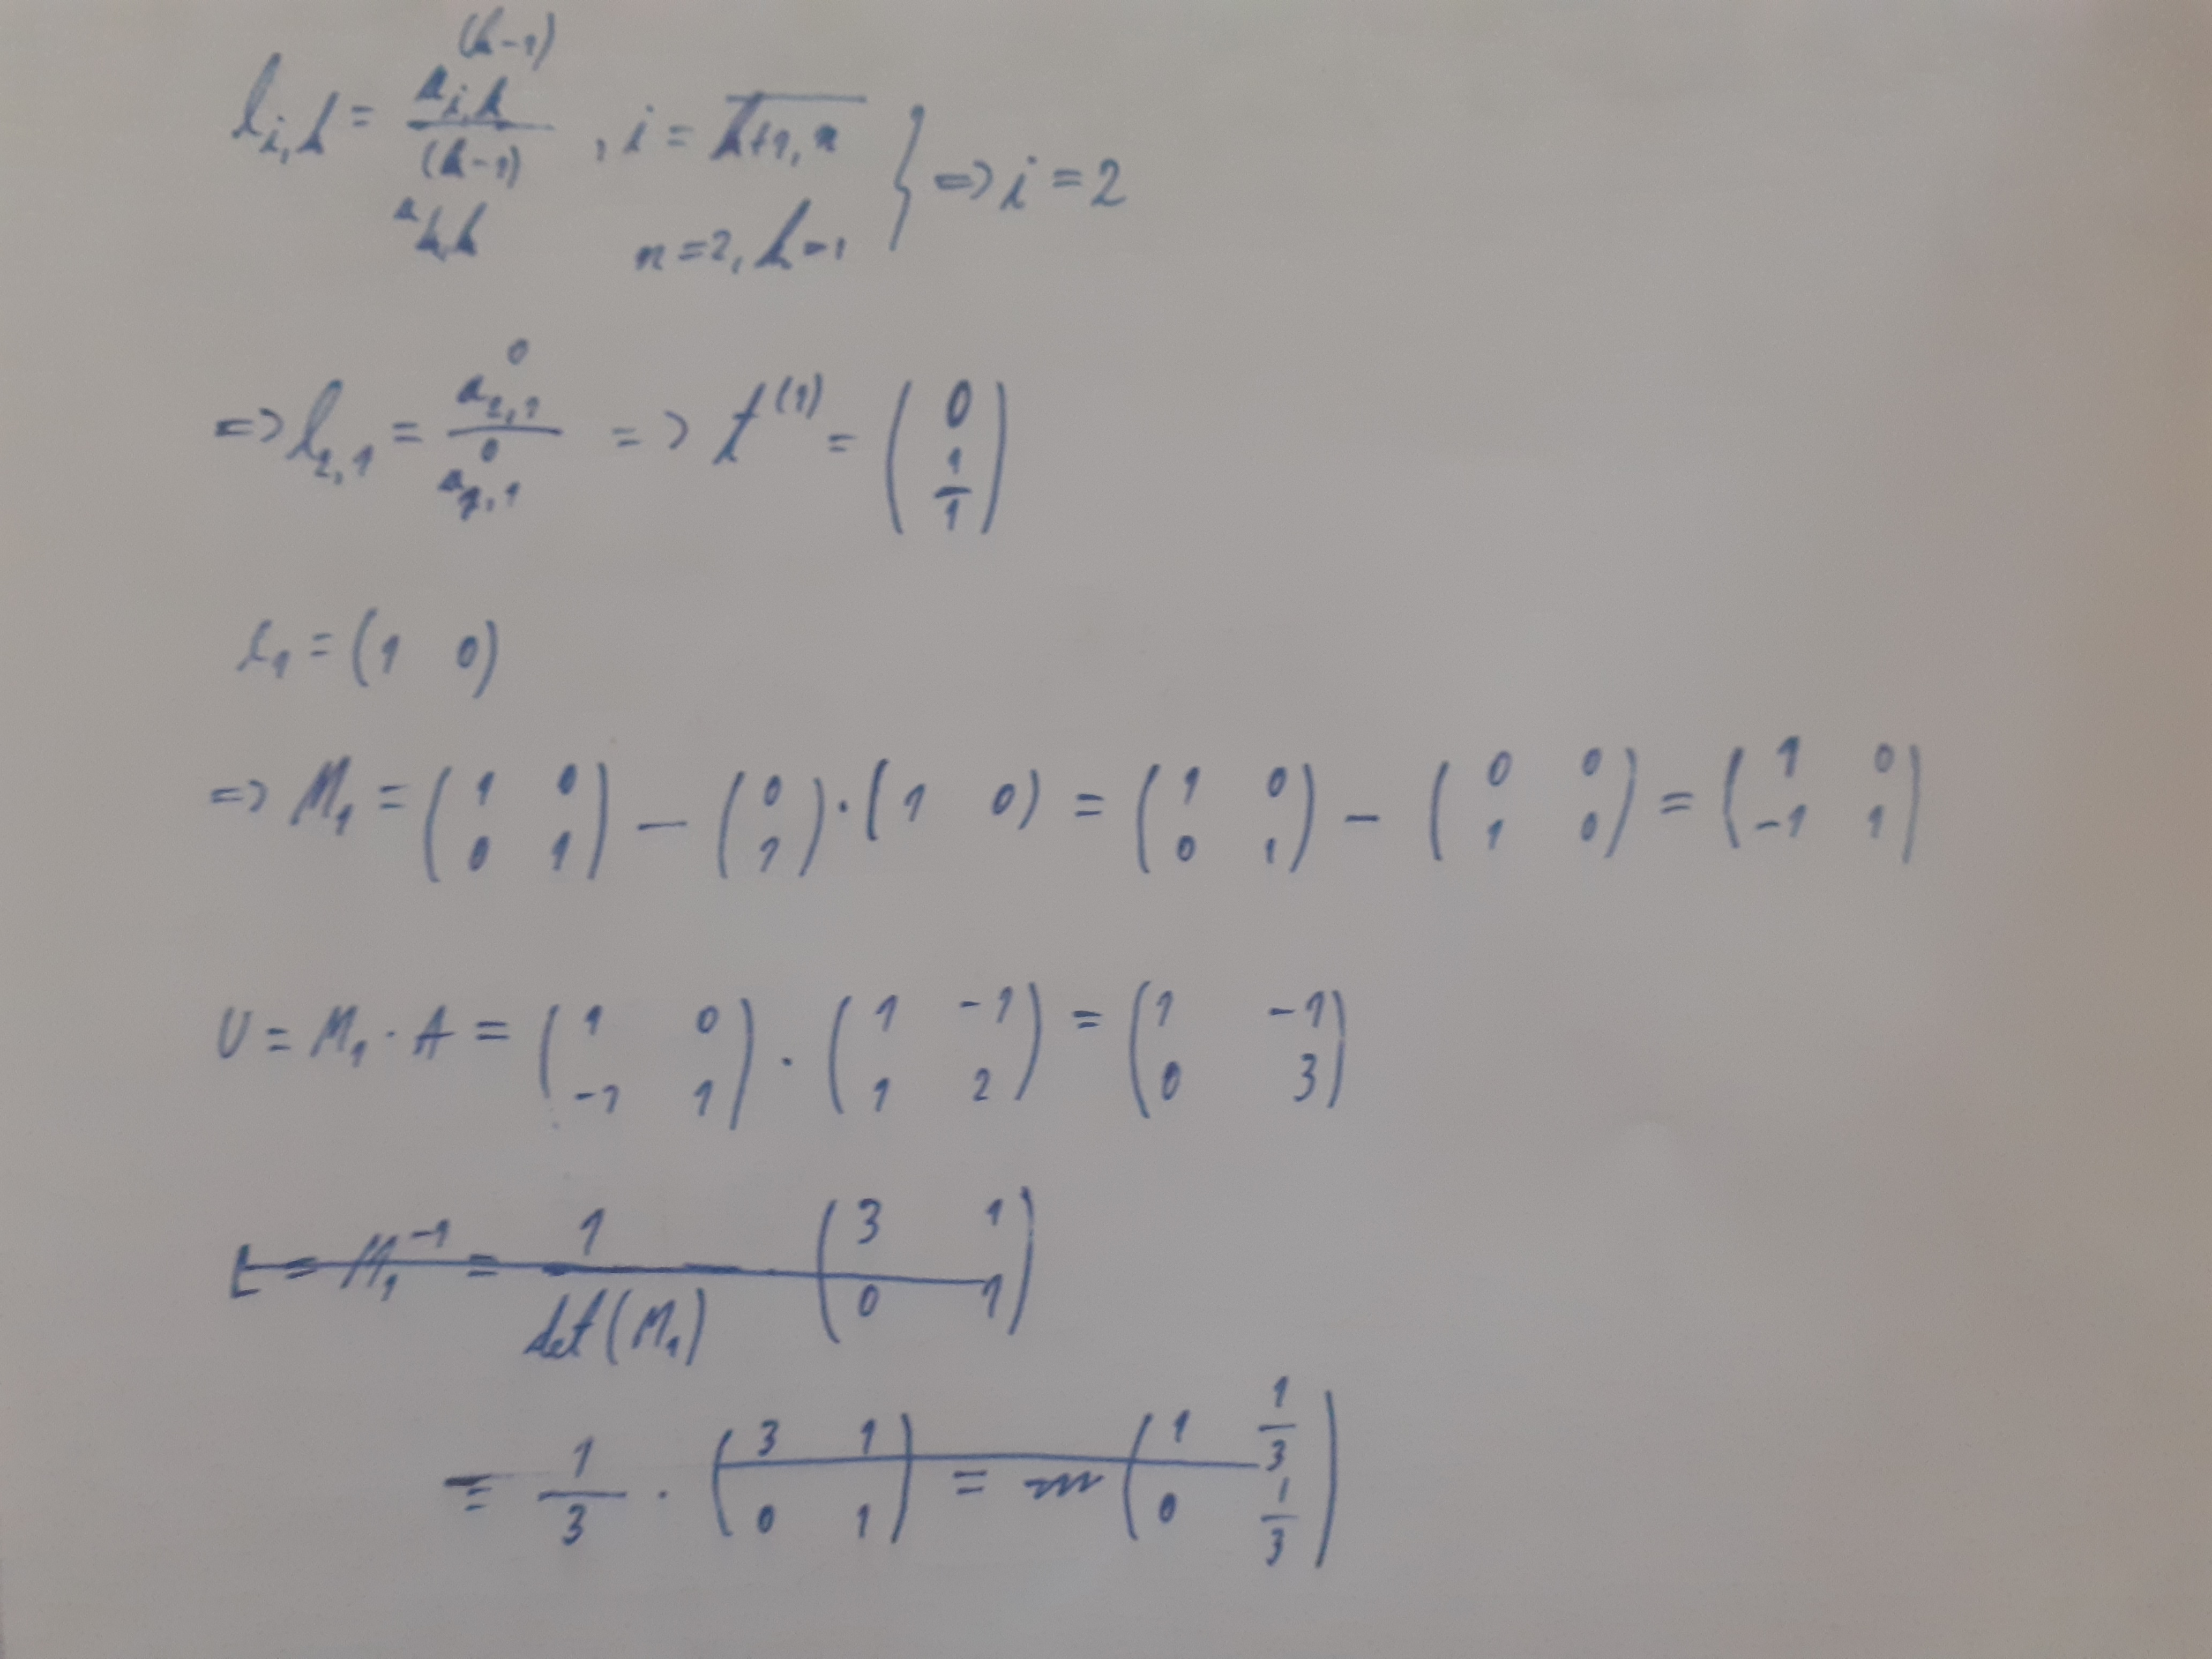 l_{i,k} = a_{i,k}^{(k-1)} / a_{k,k}^{(k-1)} , i = \overline{k+1, n}
n = 2, k = 1 } => i = 2
=> l_{2,1} = a_{2,1}^{0} / a_{1,1}^{0} => t^{(1)} = ( 0 ; 1/1 )
e_1 = ( 1 0 )
=> M_1 = ( 1 0 ; 0 1 ) - ( 0 ; 1 ) · ( 1 0 ) = ( 1 0 ; 0 1 ) - ( 0 0 ; 1 0 ) = ( 1 0 ; -1 1 )
U = M_1 · A = ( 1 0 ; -1 1 ) · ( 1 -1 ; 1 2 ) = ( 1 -1 ; 0 3 )
L = M_1^{-1} = 1 / det(M_1) ( 3 1 ; 0 1 )
= 1/3 · ( 3 1 ; 0 1 ) = ( 1 1/3 ; 0 1/3 )